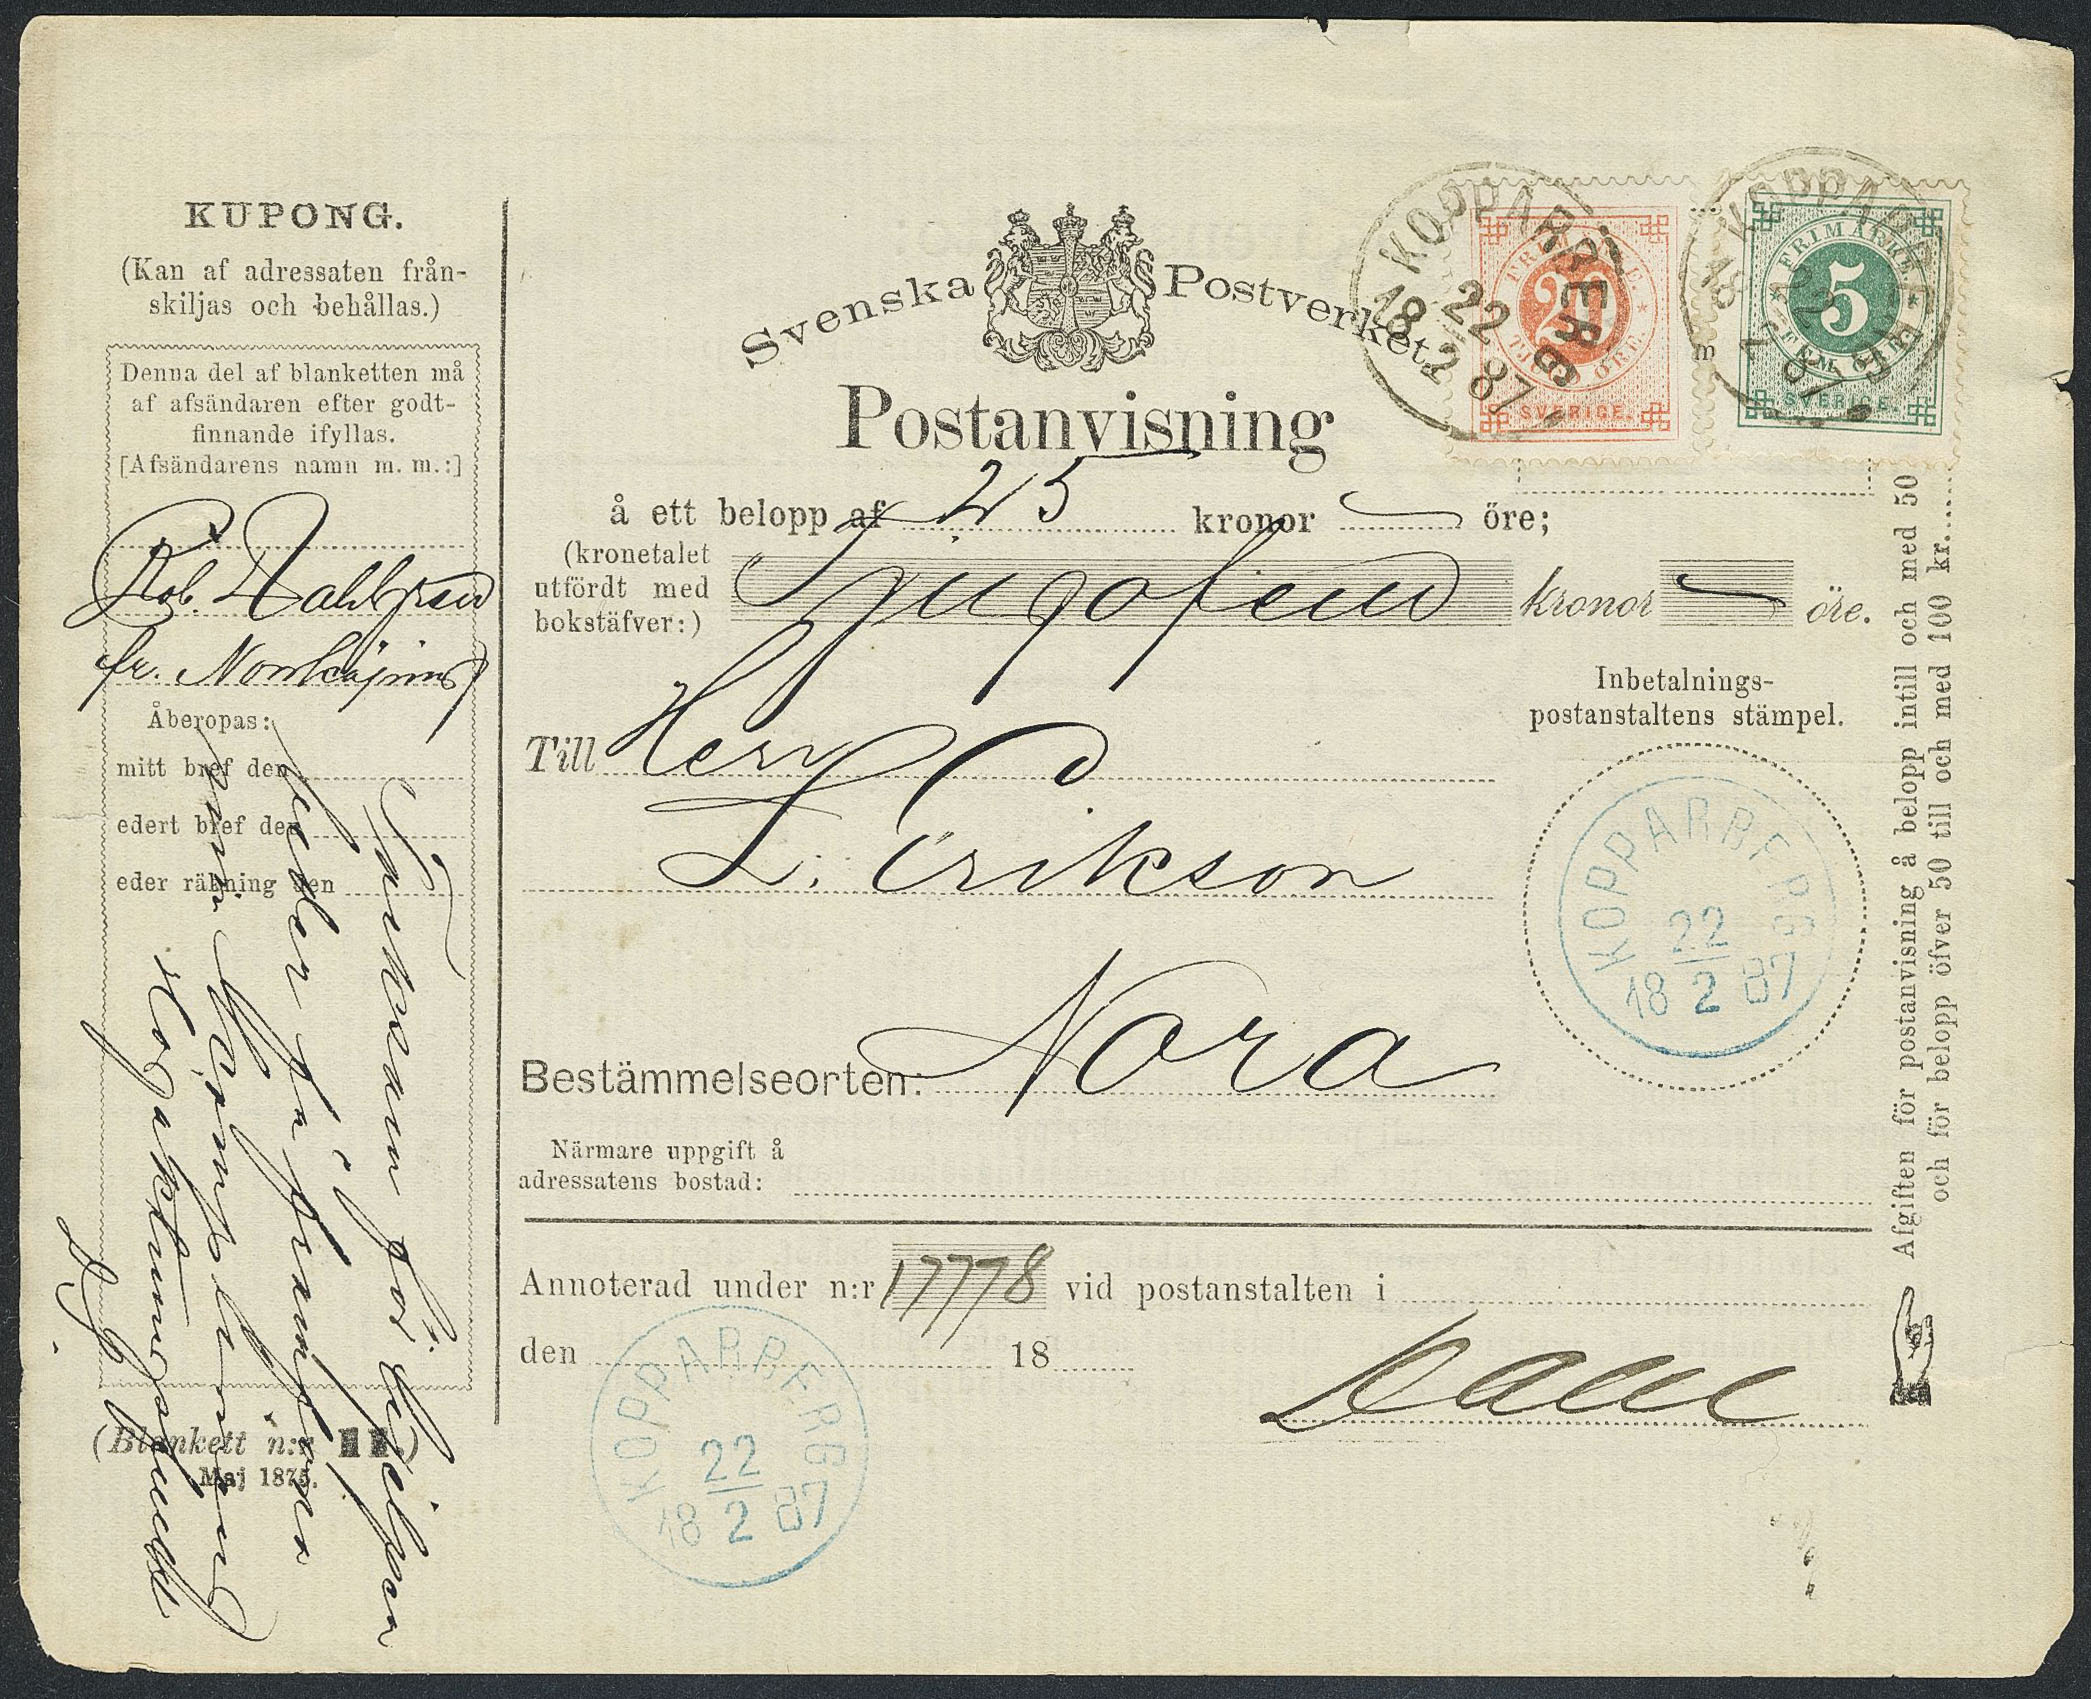 KUPONG.
(Kan af adressaten från-
skiljas och behållas.)
Denna del af blanketten må
af afsändaren efter godt-
finnande ifyllas.
[Afsändarens namn m. m.:]
Rob. Dahlgren
fr. Norrköping
Åberopas:
mitt bref den
edert bref den
eder räkning den
för
min
(Blankett n:r 11.)
Maj 1875.
Svenska Postverket.
Postanvisning
å ett belopp af 25 kronor öre;
(kronetalet
utfördt med
bokstäfver:)
Tjugofem kronor öre.
Till Herr
L. Erikson
Bestämmelseorten: Nora
Närmare uppgift å
adressatens bostad:
Annoterad under n:r 17778 vid postanstalten i
den 18
KOPPARBERG
22
18 2 87
Inbetalnings-
postanstaltens stämpel.
KOPPARBERG
22
18 2 87
KOPPARBERG
22
18 2 87
FRIMÄRKE.
20
TJUGO ÖRE.
SVERIGE.
KOPPARBERG
18 87
FRIMÄRKE.
5
FEM ÖRE.
SVERIGE.
m
Afgiften för postanvisning å belopp intill och med 50
och för belopp öfver 50 till och med 100 kr.